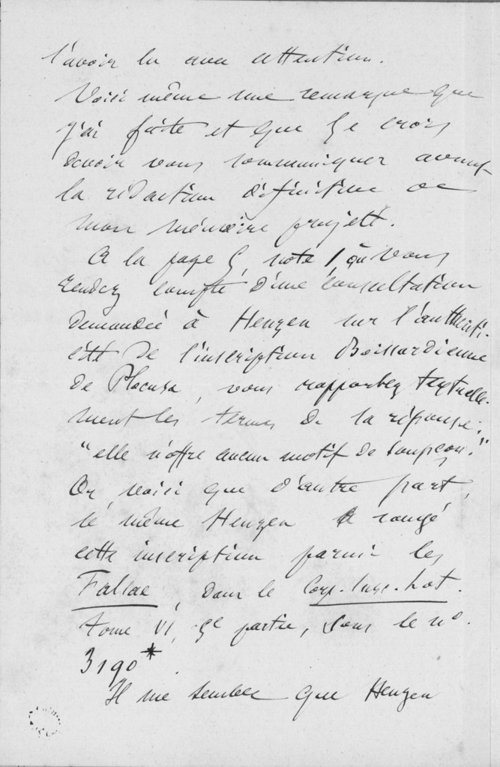 l'avoir lu avec attention.
Voici même une remarque que
j'ai faite et que je crois
devoir vous communiquer avant
la rédaction définitive de
mon mémoire projeté.
A la page 5, note 1, où vous
rendez compte d'une consultation
demandée à Henzen sur l'authenti-
cité de l'inscription Boissardienne
de Placusa, vous rapportez textuelle-
ment les termes de la réponse:
"elle n'offre aucun motif de soupçon."
Or, voici que d'autre part,
le même Henzen a rangé
cette inscription parmi les
Falsae, dans le Corp. Insc. Lat.
tome VI, 5e partie, sous le no.
3190*.
Il me semble que Henzen